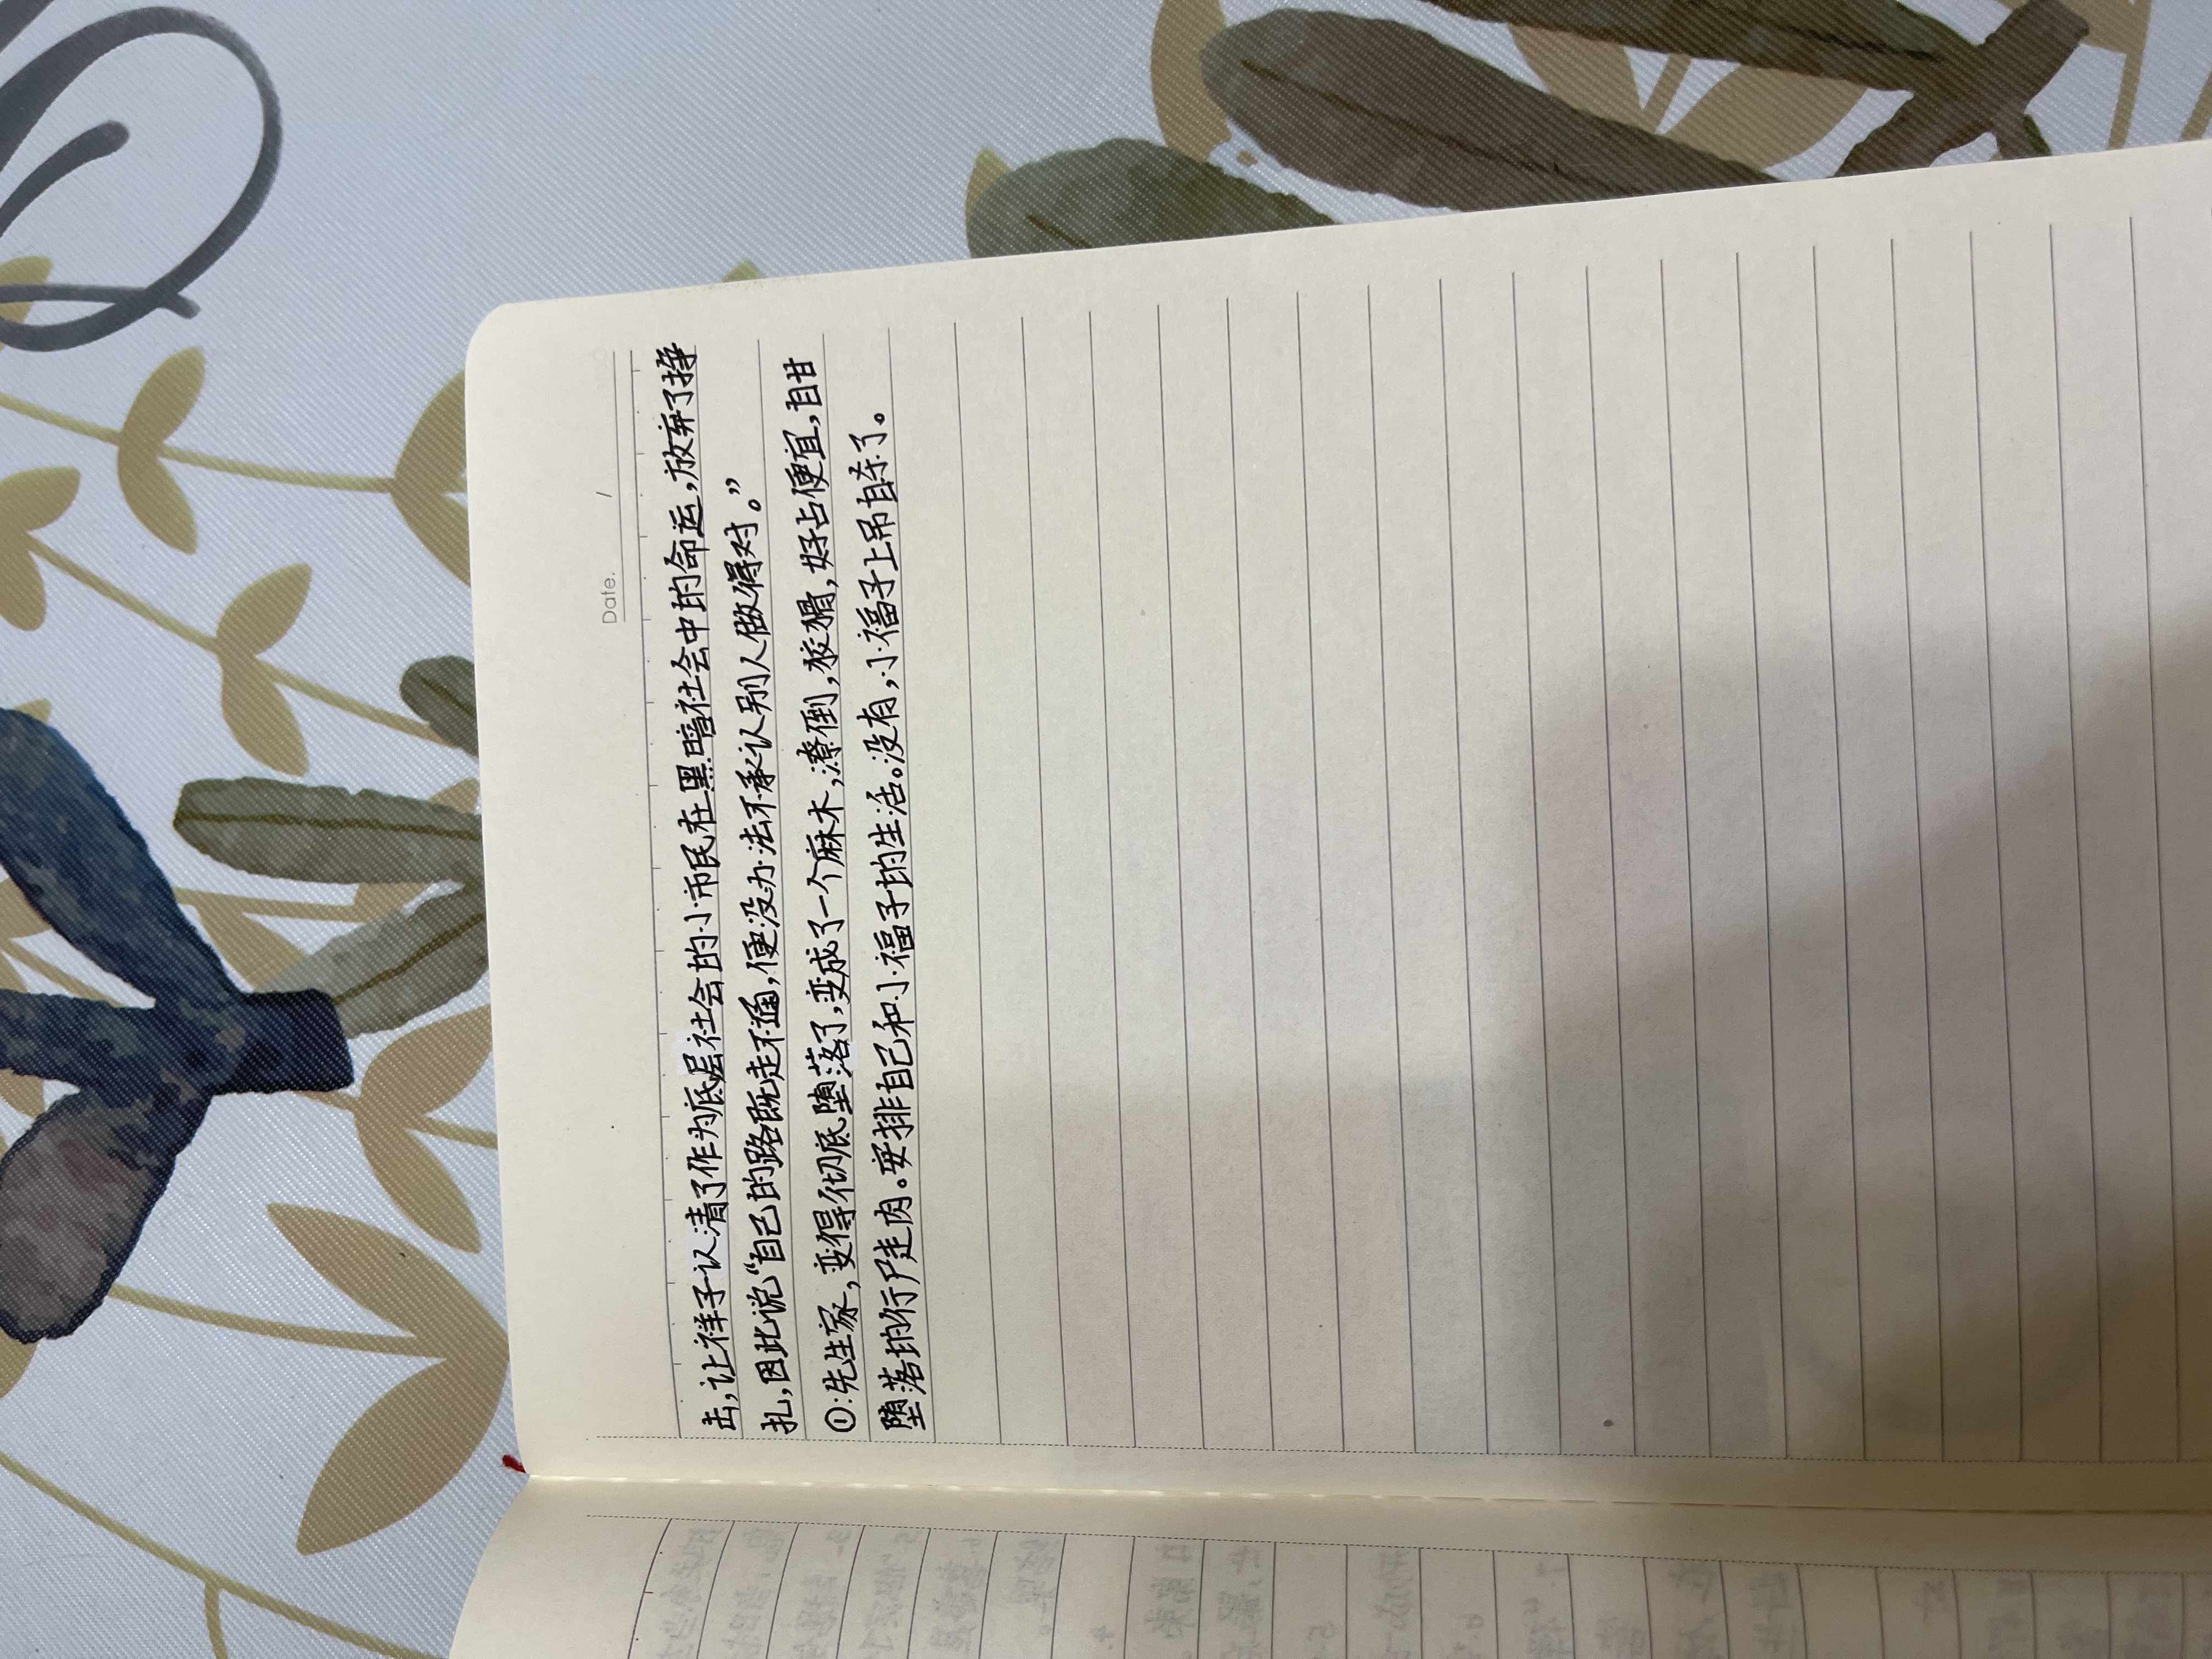 Date. /
击,让祥子认清了作为底层社会的小市民在黑暗社会中的命运,放弃了挣
扎,因此说“自己的路既走不通,便没办法不承认别人做得对。”
①:先生家,变得彻底堕落了,变成了一个麻木,潦倒,狡猾,好占便宜,自甘
堕落的行尸走肉。安排自己和小福子的生活。没有,小福子上吊自杀了。